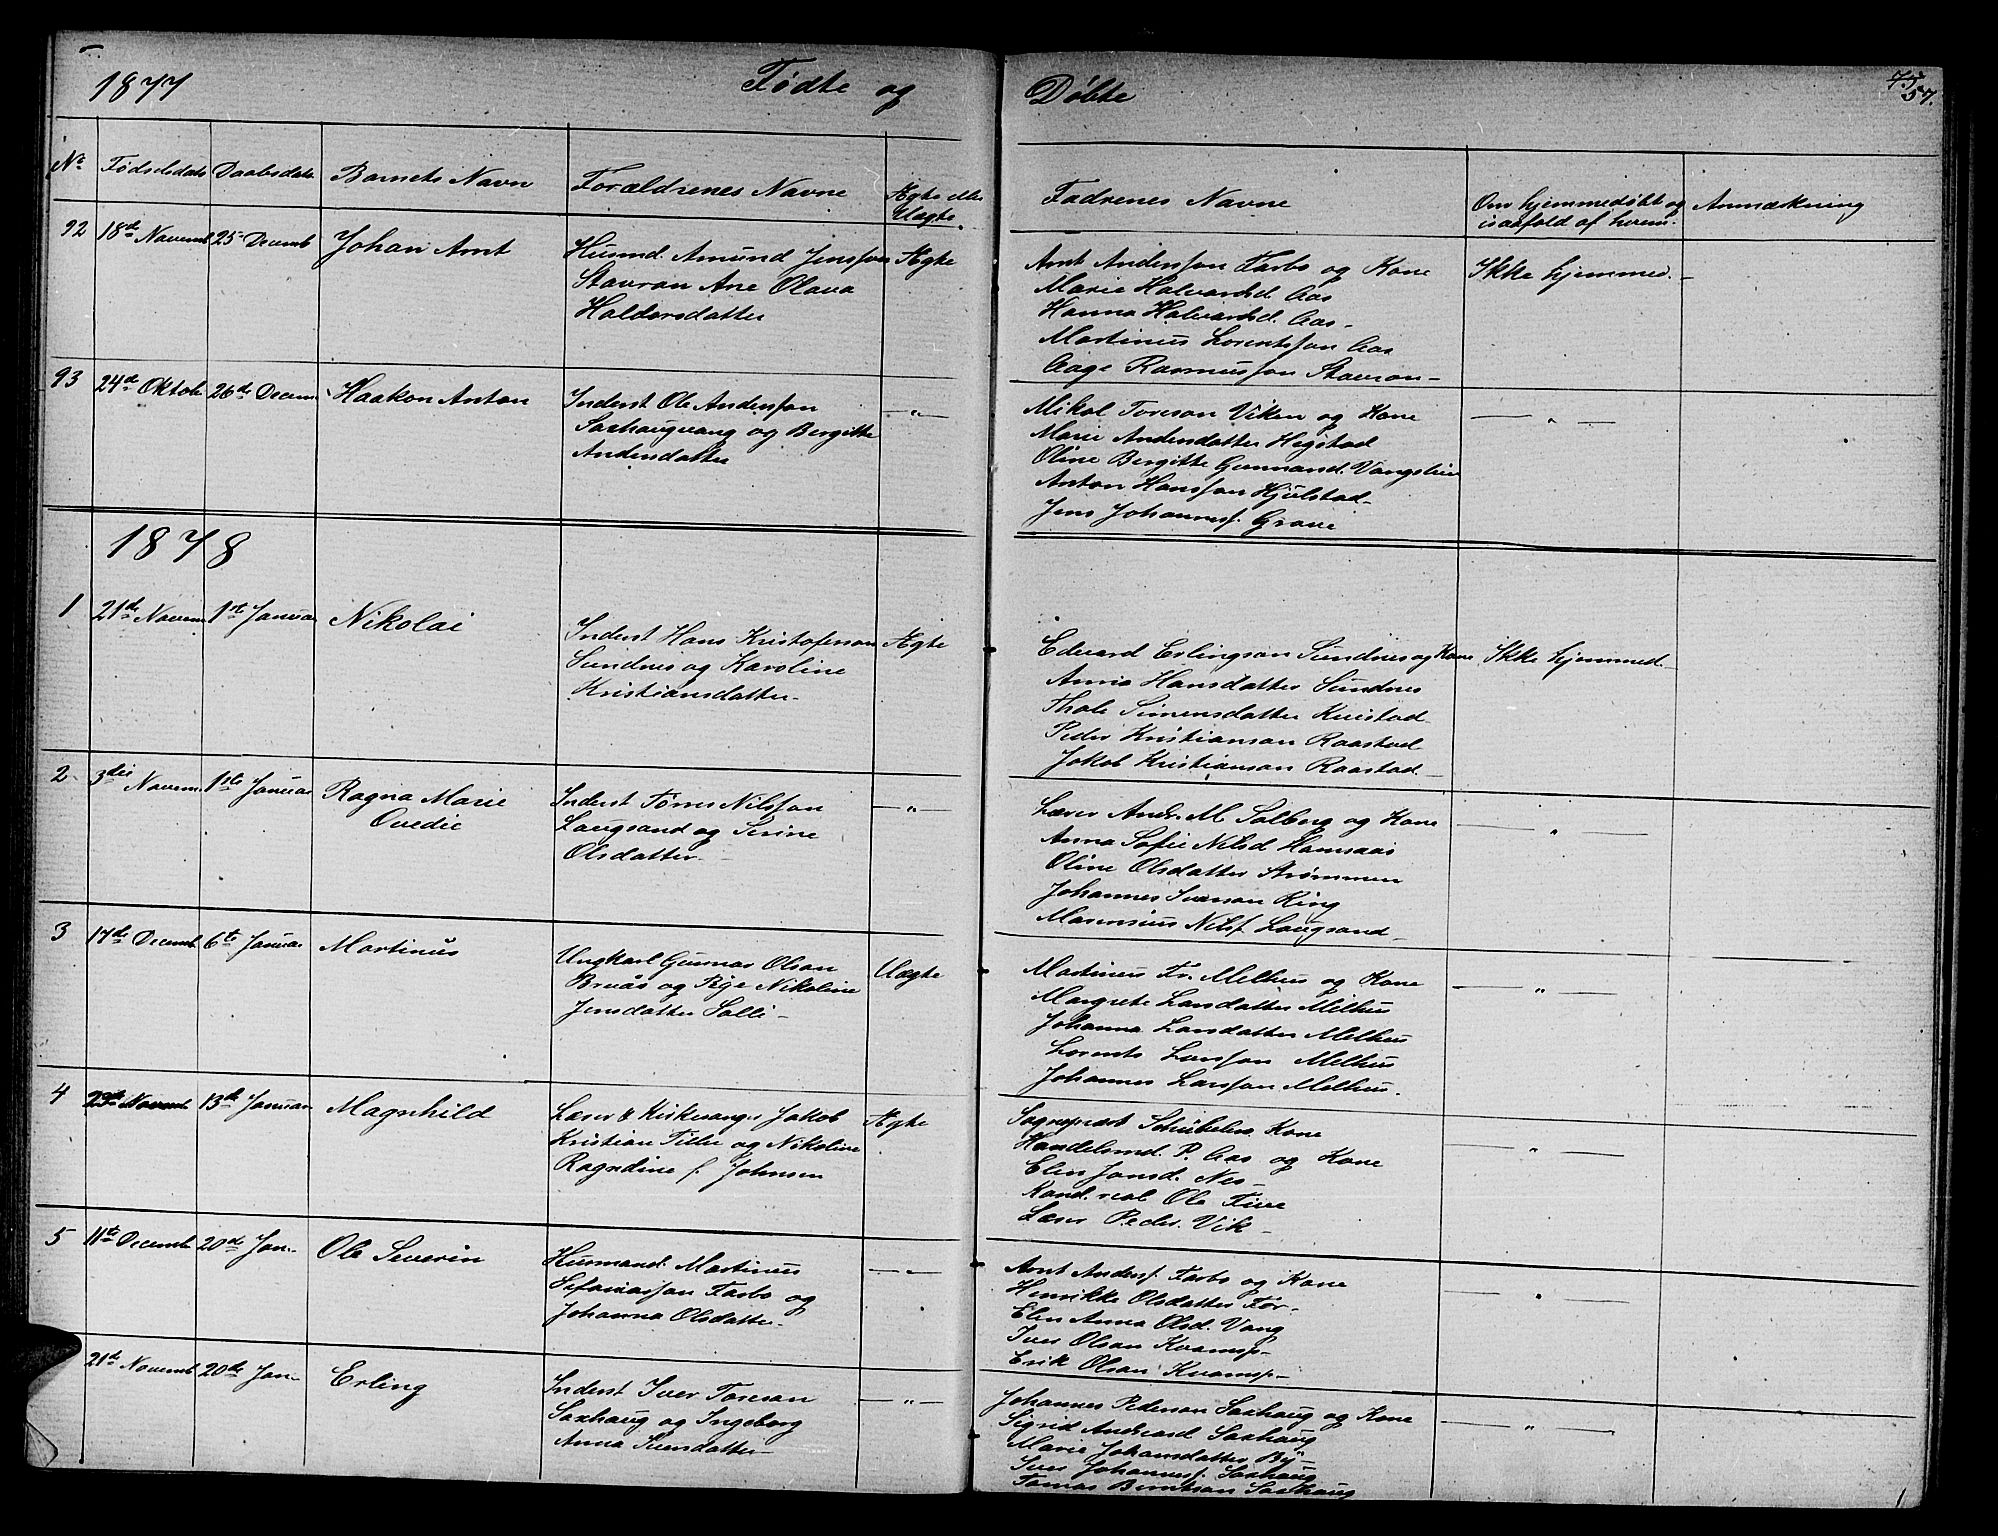 1877 Fødte og Døbte 57.
No Fødselsdato Daabsdato Barnets Navn Forældrenes Navne Ægte eller Uægte Fadrenes Navne Om hjemmedøbt og isaafald af hvem. Anmærkning
92 18de Novemb 25 Decemb Johan Arnt Husmd. Amund Jensson Ægte
Stavran Ane Olava
Haldorsdatter
Arnt Andersson Farbo og Kone Ikke hjemmed. -
Marie Halvardsd. Aas
Hanna Halvardsd. Aas -
Martinus Lorentsson Aas
Aage Rasmusson Stavran -
93 24de Oktob. 26de Decem. Haakon Anton Inderst Ole Andersson — " —
Saxhaugvang og Bergitte
Andersdatter
Mikal Toresøn Viken og Kone — " —
Marie Andersdatter Hegstad
Oline Bergitte Gunnarsd. Vangslien
Anton Hansson Hjulstad -
Jens Johanness. Grave
1878
1 21de Novem. 1ste Januar Nikolai Inderst Hans Kristoferson Ægte
Sundnes og Karoline
Kristiansdatter -
Edvard Erlingson Sundnes og Kone Ikke hjemmed. -
Anna Hansdatter Sundnes
Thale Simensdatter Kvistad
Peder Kristianson Raastad
Jakob Kristianson Raastad -
2 3die Novem. 1ste Januar Ragna Marie Inderst Tørres Nilsson — " —
Ovedie Langsand og Serine
Olsdatter -
Lærer Andr. M. Solberg og Kone — " —
Anna Sofie Nilsd Hamsaas
Oline Olsdatter Strømmen
Johannes Iverson Ring
Marensius Nilss. Langsand -
3 17de Decemb. 6te Januar Martinus Ungkarl Gunnar Olson Uægte
Bruås og Pige Nikoline
Jensdatter Salli -
Martinus Fr. Melhus og Kone — " —
Margrete Larsdatter Melhus
Johanna Larsdatter Melhus
Lorents Larsson Melhus
Johannes Larsson Melhus.
4 Novemb 13de Januar Magnhild Lærer & Kirkesanger Jakob Ægte
Kristian Tiller og Nikoline
Ragndine f. Johnsen
Sogneprest Schübelers Kone — " —
Handelsmd. P. Aas og Kone
Elen Jonsd. Nes -
Kand. real Ole Five
Lærer Peder Vik -
5 11te Decemb 20de Jan. Ole Severin Husmand Martinus — " —
Sefaniasson Farbo og
Johanna Olsdatter -
Arnt Anderss. Farbo og Kone — " —
Henrikke Olsdatter Før -
Elen Anna Olsd. Vang
Iver Olson Kvamsp. -
Erik Olson Kvamsp -
21de Novemb 20de Jan. Erling Inderst Iver Toreson — " —
Saxhaug og Ingeborg
Anna Svensdatter -
Johannes Pederson Saxhaug og Kone — " —
Sigrid Andreasd Saxhaug
Marie Johansdatter By -
Iver Johanness. Saxhaug
Tomas Berntson Saxhaug